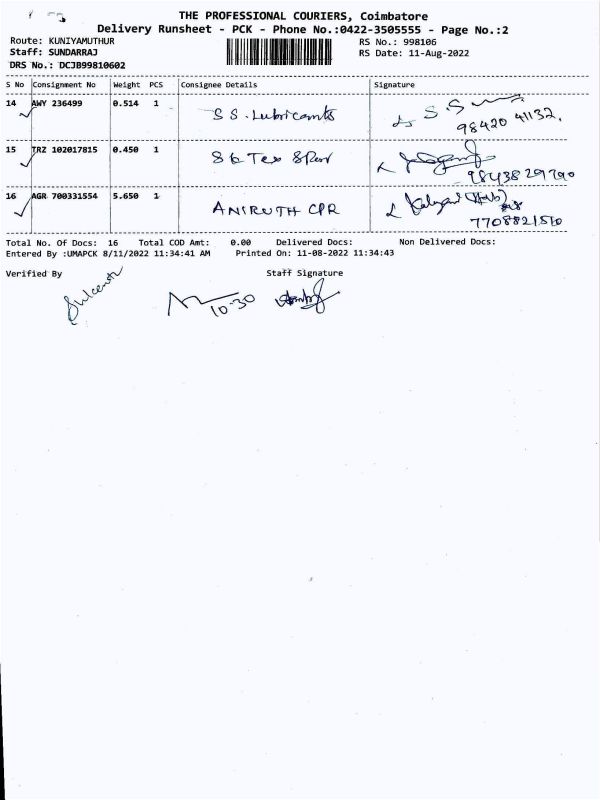 THE PROFESSIONAL COURIERS, Coimbatore
Delivery Runsheet - PCK - Phone No.:0422-3505555 - Page No.:2
Route: KUNIYAMUTHUR RS No.: 998106
Staff: SUNDARRAJ RS Date: 11-Aug-2022
DRS No.: DCJB99810602
S No Consignment No Weight PCS Consignee Details Signature
14 AWY 236499 0.514 1 S S. Lubricants S.S
98420 41132.
15 TRZ 102017815 0.450 1 S k Tex
16 AGR 700331554 5.650 1 ANIRUTH CPR
Total No. Of Docs: 16 Total COD Amt: 0.00 Delivered Docs: Non Delivered Docs:
Entered By :UMAPCK 8/11/2022 11:34:41 AM Printed On: 11-08-2022 11:34:43
Verified By Staff Signature
10-30